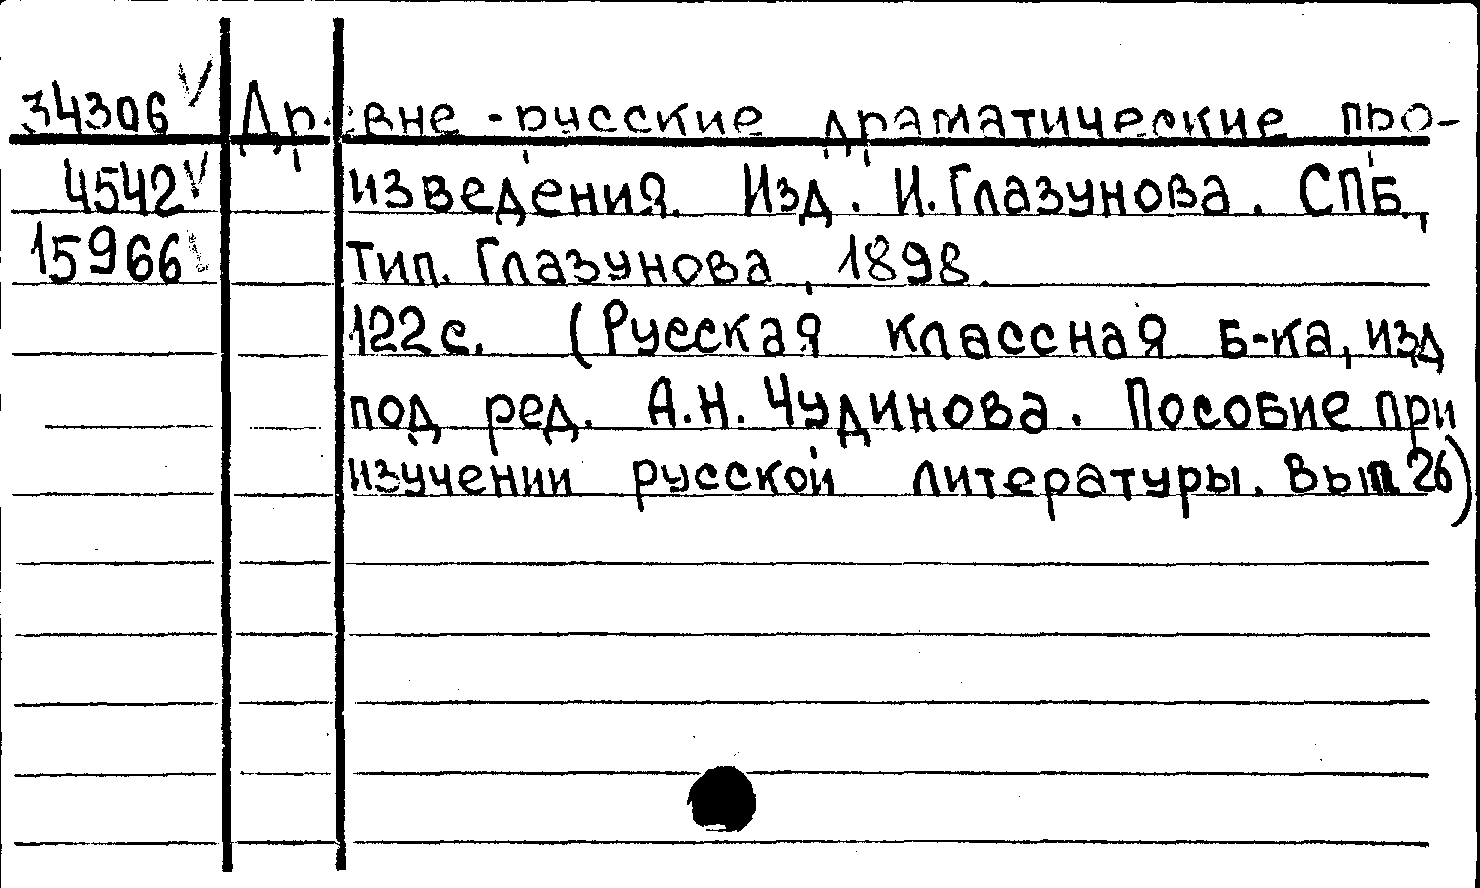 34306 V Древне-русские драматические про-
4542 V изведения. Изд. И. Глазунова. СПБ.,
15966 V Тип. Глазунова, 1898.
122 с. (Русская классная б-ка, изд
под ред. А.Н. Чудинова. Пособие при
изучении русской литературы. Вып 26)